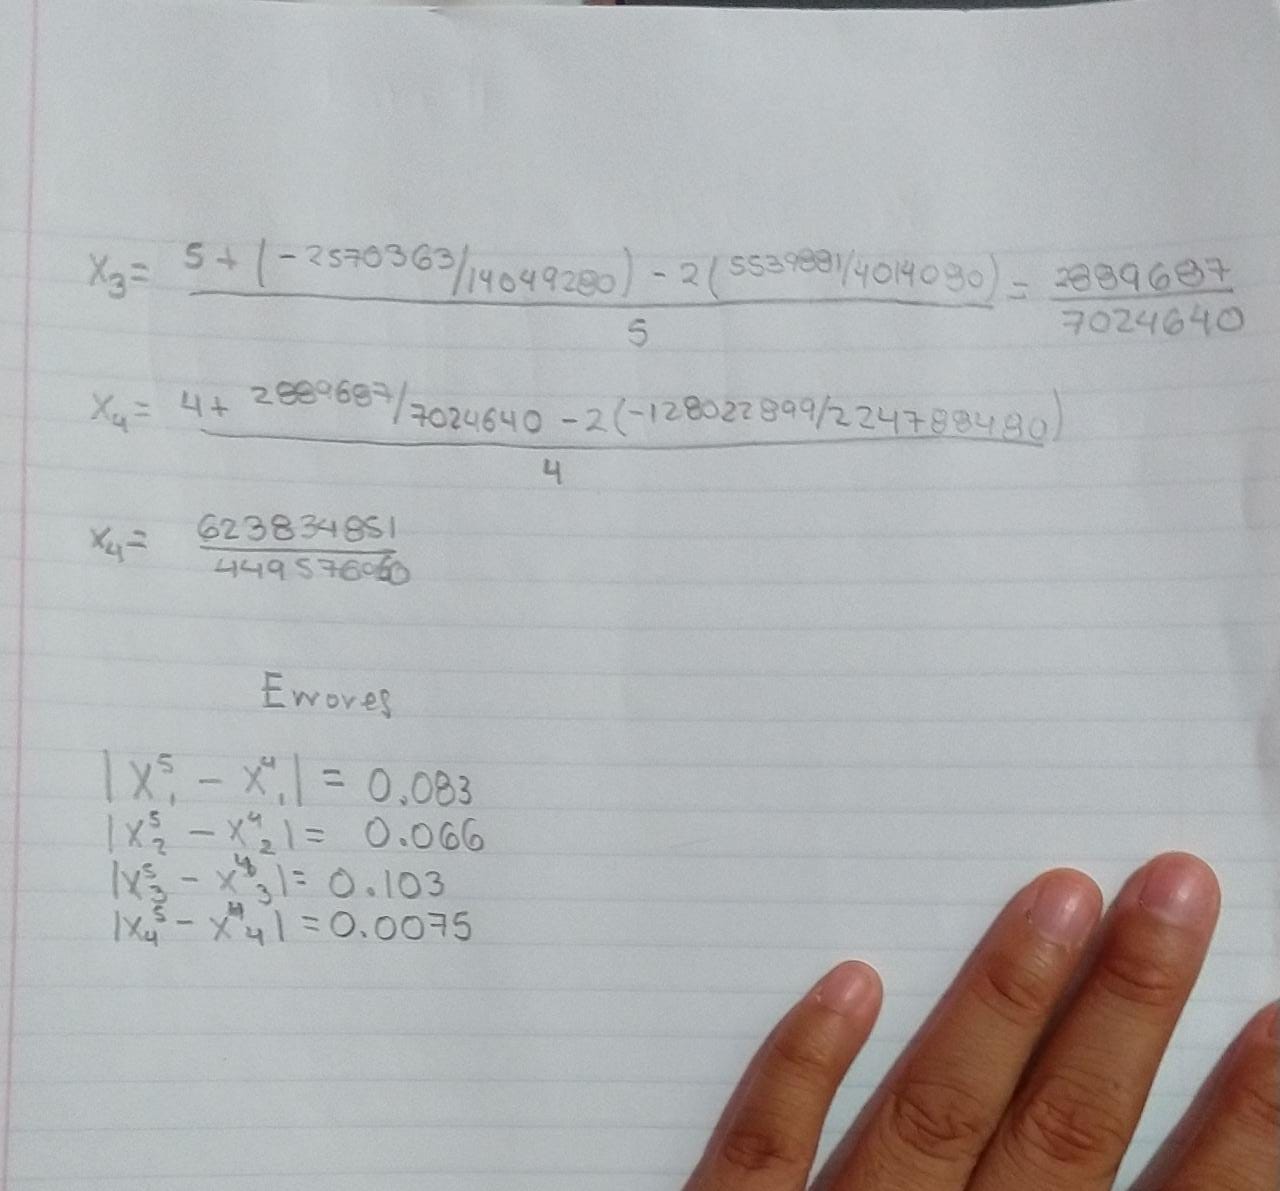 x₃= 5+(-2570363/14049280)-2(5539881/4014080) / 5 = 2889687 / 7024640
x₄= 4+ 2889687/7024640 -2(-128022899/224788480) / 4
x₄= 623834851 / 449576960
Errores
|x₁⁵ - x₁⁴| = 0.083
|x₂⁵ - x₂⁴| = 0.066
|x₃⁵ - x₃⁴| = 0.103
|x₄⁵ - x₄⁴| = 0.0075